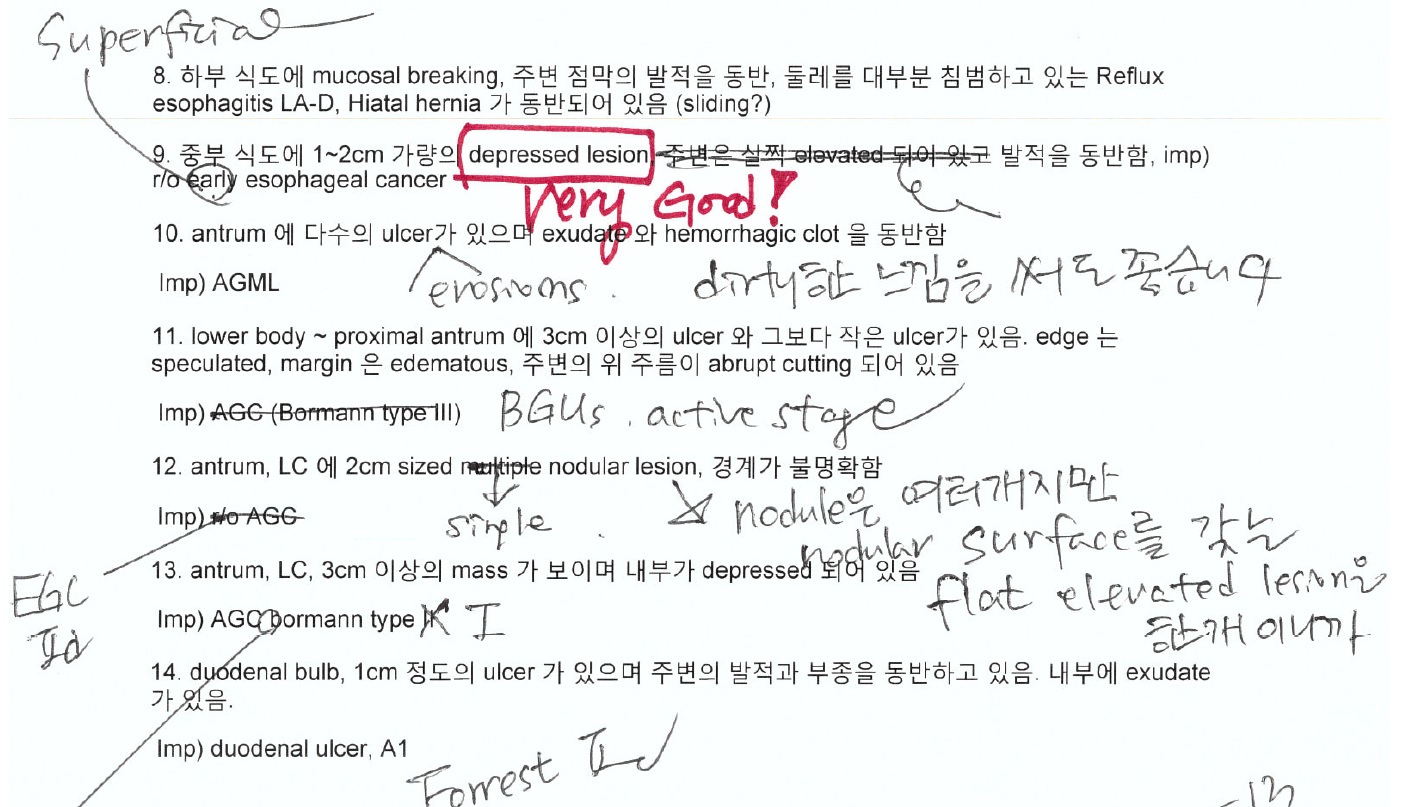 Superficial
8. 하부 식도에 mucosal breaking, 주변 점막의 발적을 동반, 둘레를 대부분 침범하고 있는 Reflux
esophagitis LA-D, Hiatal hernia 가 동반되어 있음 (sliding?)
9. 중부 식도에 1~2cm 가량의 depressed lesion, 주변은 살짝 elevated 되어 있고 발적을 동반함, imp)
r/o early esophageal cancer
Very Good!
10. antrum 에 다수의 ulcer가 있으며 exudate 와 hemorrhagic clot 을 동반함
Imp) AGML
erosions. dirty한 느낌을 써도 좋습니다
11. lower body ~ proximal antrum 에 3cm 이상의 ulcer 와 그보다 작은 ulcer가 있음. edge 는
speculated, margin 은 edematous, 주변의 위 주름이 abrupt cutting 되어 있음
Imp) AGC (Bormann type III) BGUs. active stage
12. antrum, LC 에 2cm sized multiple nodular lesion, 경계가 불명확함
Imp) r/o AGC
single
nodule은 여러개지만
nodular surface를 갖는
flat elevated lesion은
한개이니까
13. antrum, LC, 3cm 이상의 mass 가 보이며 내부가 depressed 되어 있음
EGC
Imp) AGC bormann type I
14. duodenal bulb, 1cm 정도의 ulcer 가 있으며 주변의 발적과 부종을 동반하고 있음. 내부에 exudate
가 있음.
Imp) duodenal ulcer, A1
Forrest
-13